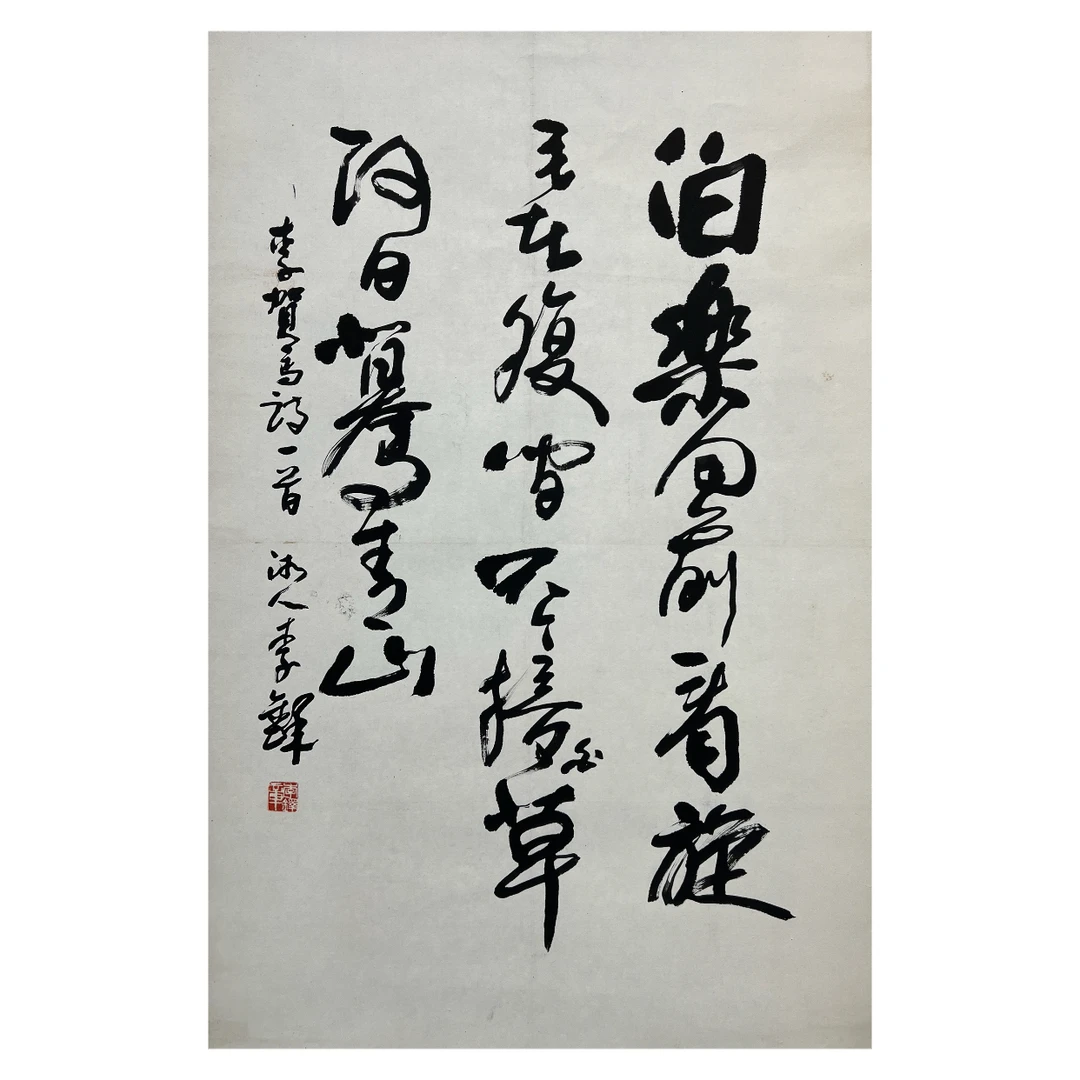 伯樂向前看旋
毛在腹間只今掊白草
何日驀青山
李賀馬詩一首 湘人李鐸